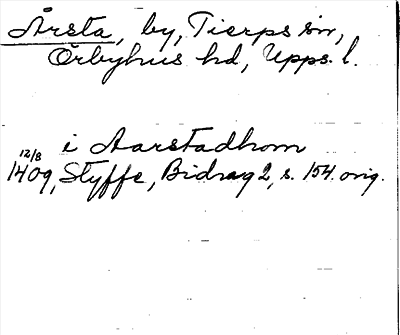 Årsta, by, Tierps sn,
Örbyhus hd, Upps. l.
i Aarstadhom
12/8
1409, Styffe, Bidrag 2, s. 154. orig.